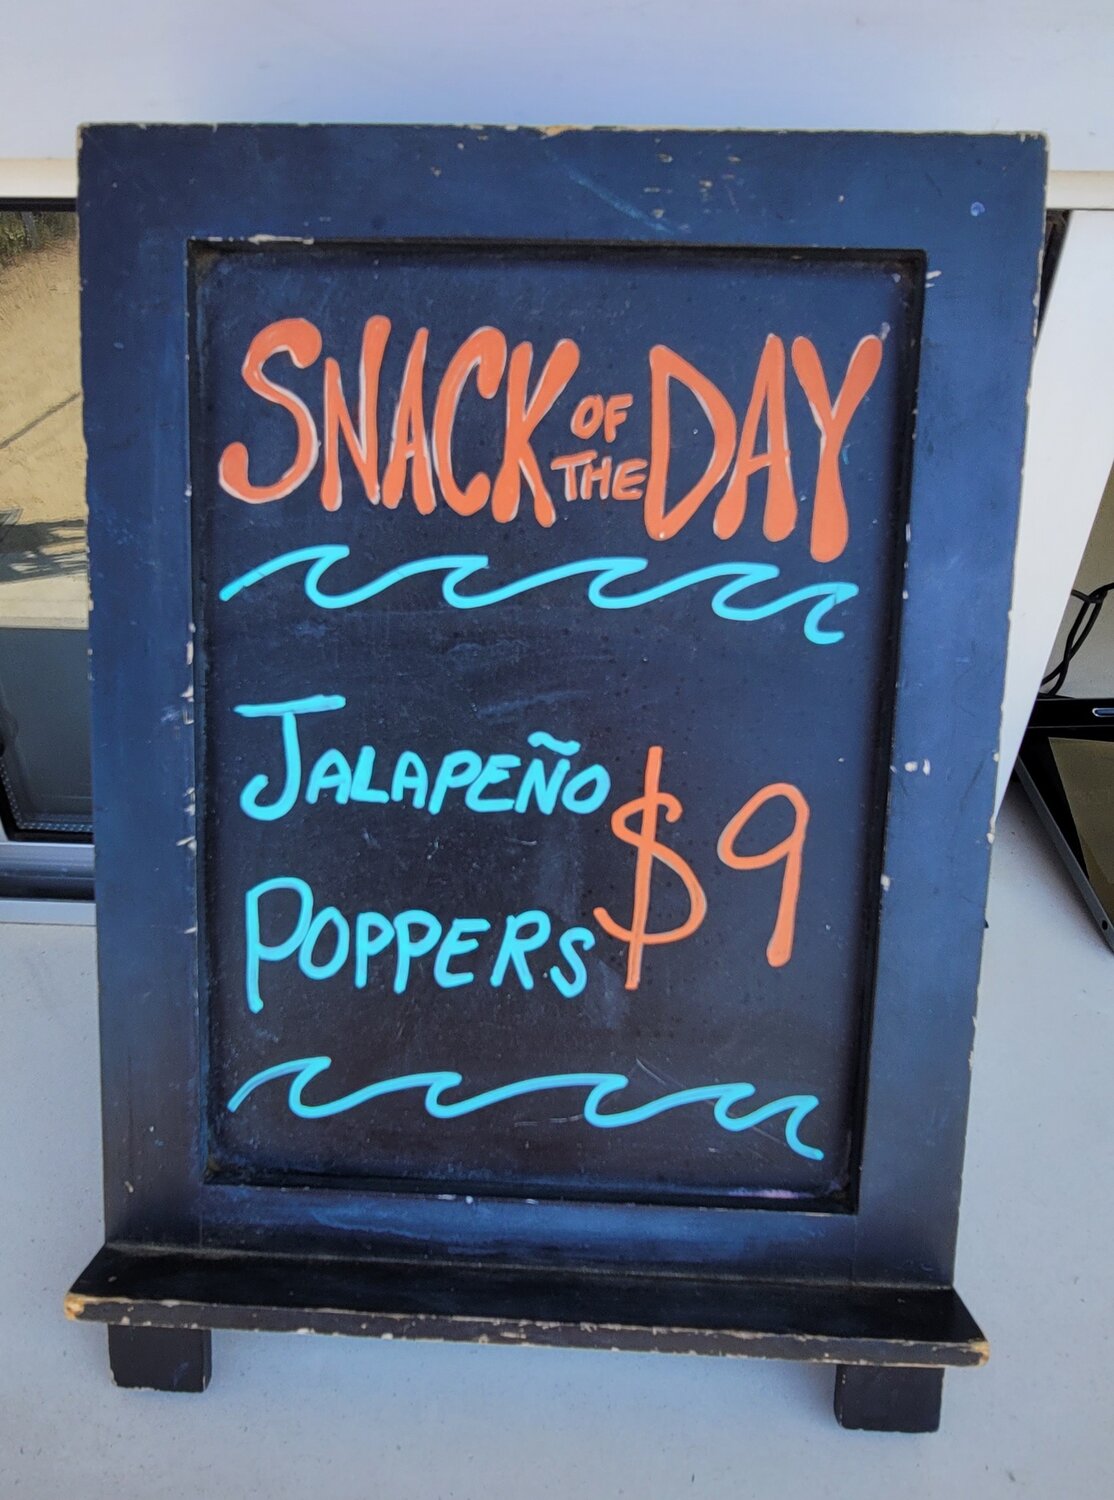 SNACK OF THE DAY
JALAPEÑO
POPPERS
$9